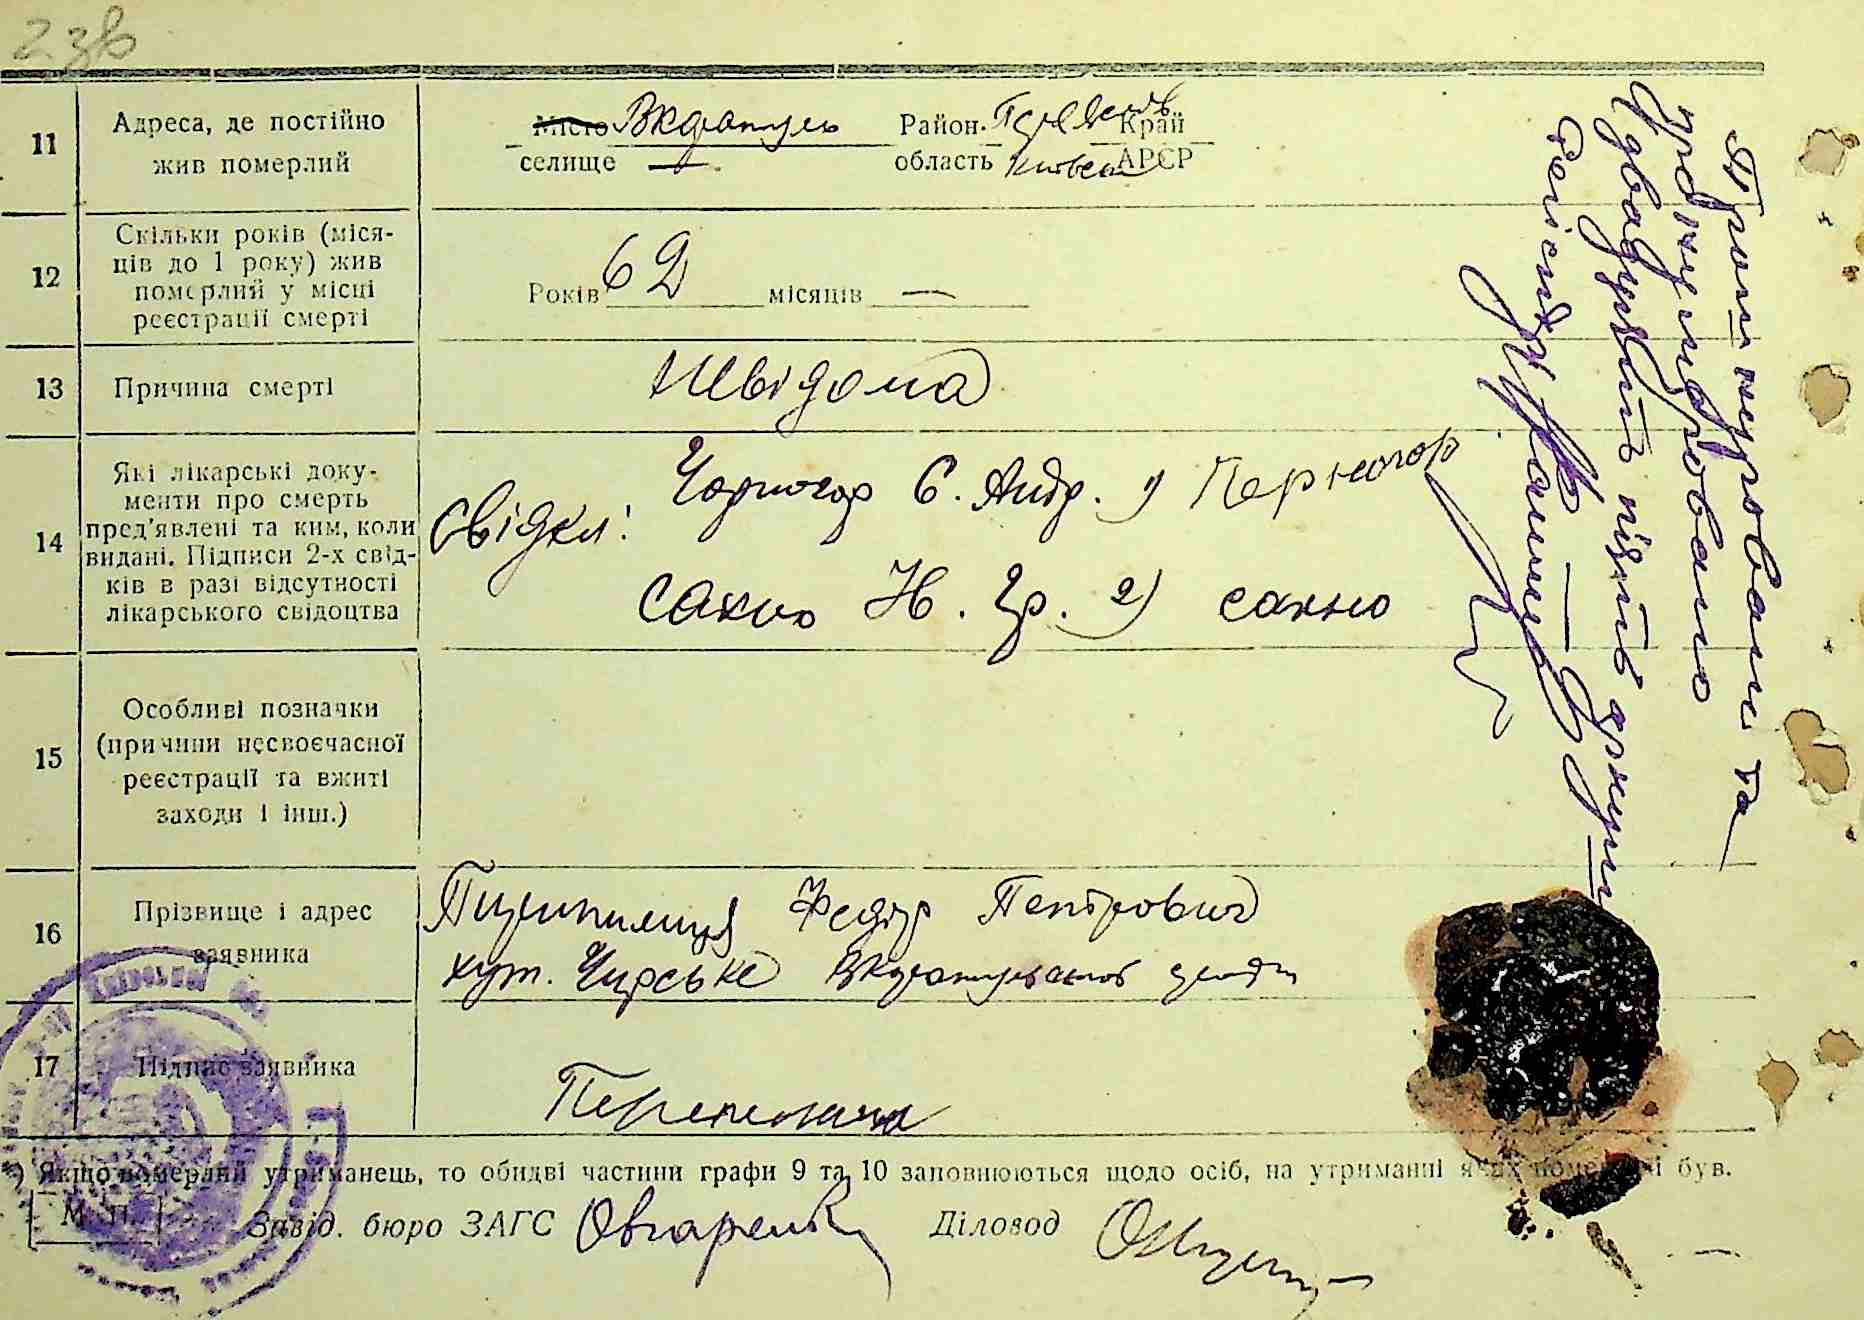 238
11
Адреса, де постійно
жив померлий
Місто Район Край
селище — область Київськ АРСР
12
Скільки років (міся-
ців до 1 року) жив
померлий у місці
реєстрації смерті
Років 62 місяців —
13
Причина смерті
Невідома
14
Які лікарські доку-
менти про смерть
пред'явлені та ким, коли
видані. Підписи 2-х свід-
ків в разі відсутності
лікарського свідоцтва
Свідки: Чорногор Є. Андр. 1) Чорногор
Сахно Н. Гр. 2) Сахно
15
Особливі позначки
(причини несвоєчасної
реєстрації та вжиті
заходи і інш.)
16
Прізвище і адрес
заявника
Федір Петрович
хут. Чирське
17
Підпис заявника
*) Якщо померлий утриманець, то обидві частини графи 9 та 10 заповнюються щодо осіб, на утриманні яких померлий був.
М. П.
Завід. бюро ЗАГС Овчаренко Діловод
Пронумеровано та
прошнуровано
двадцять п'ять